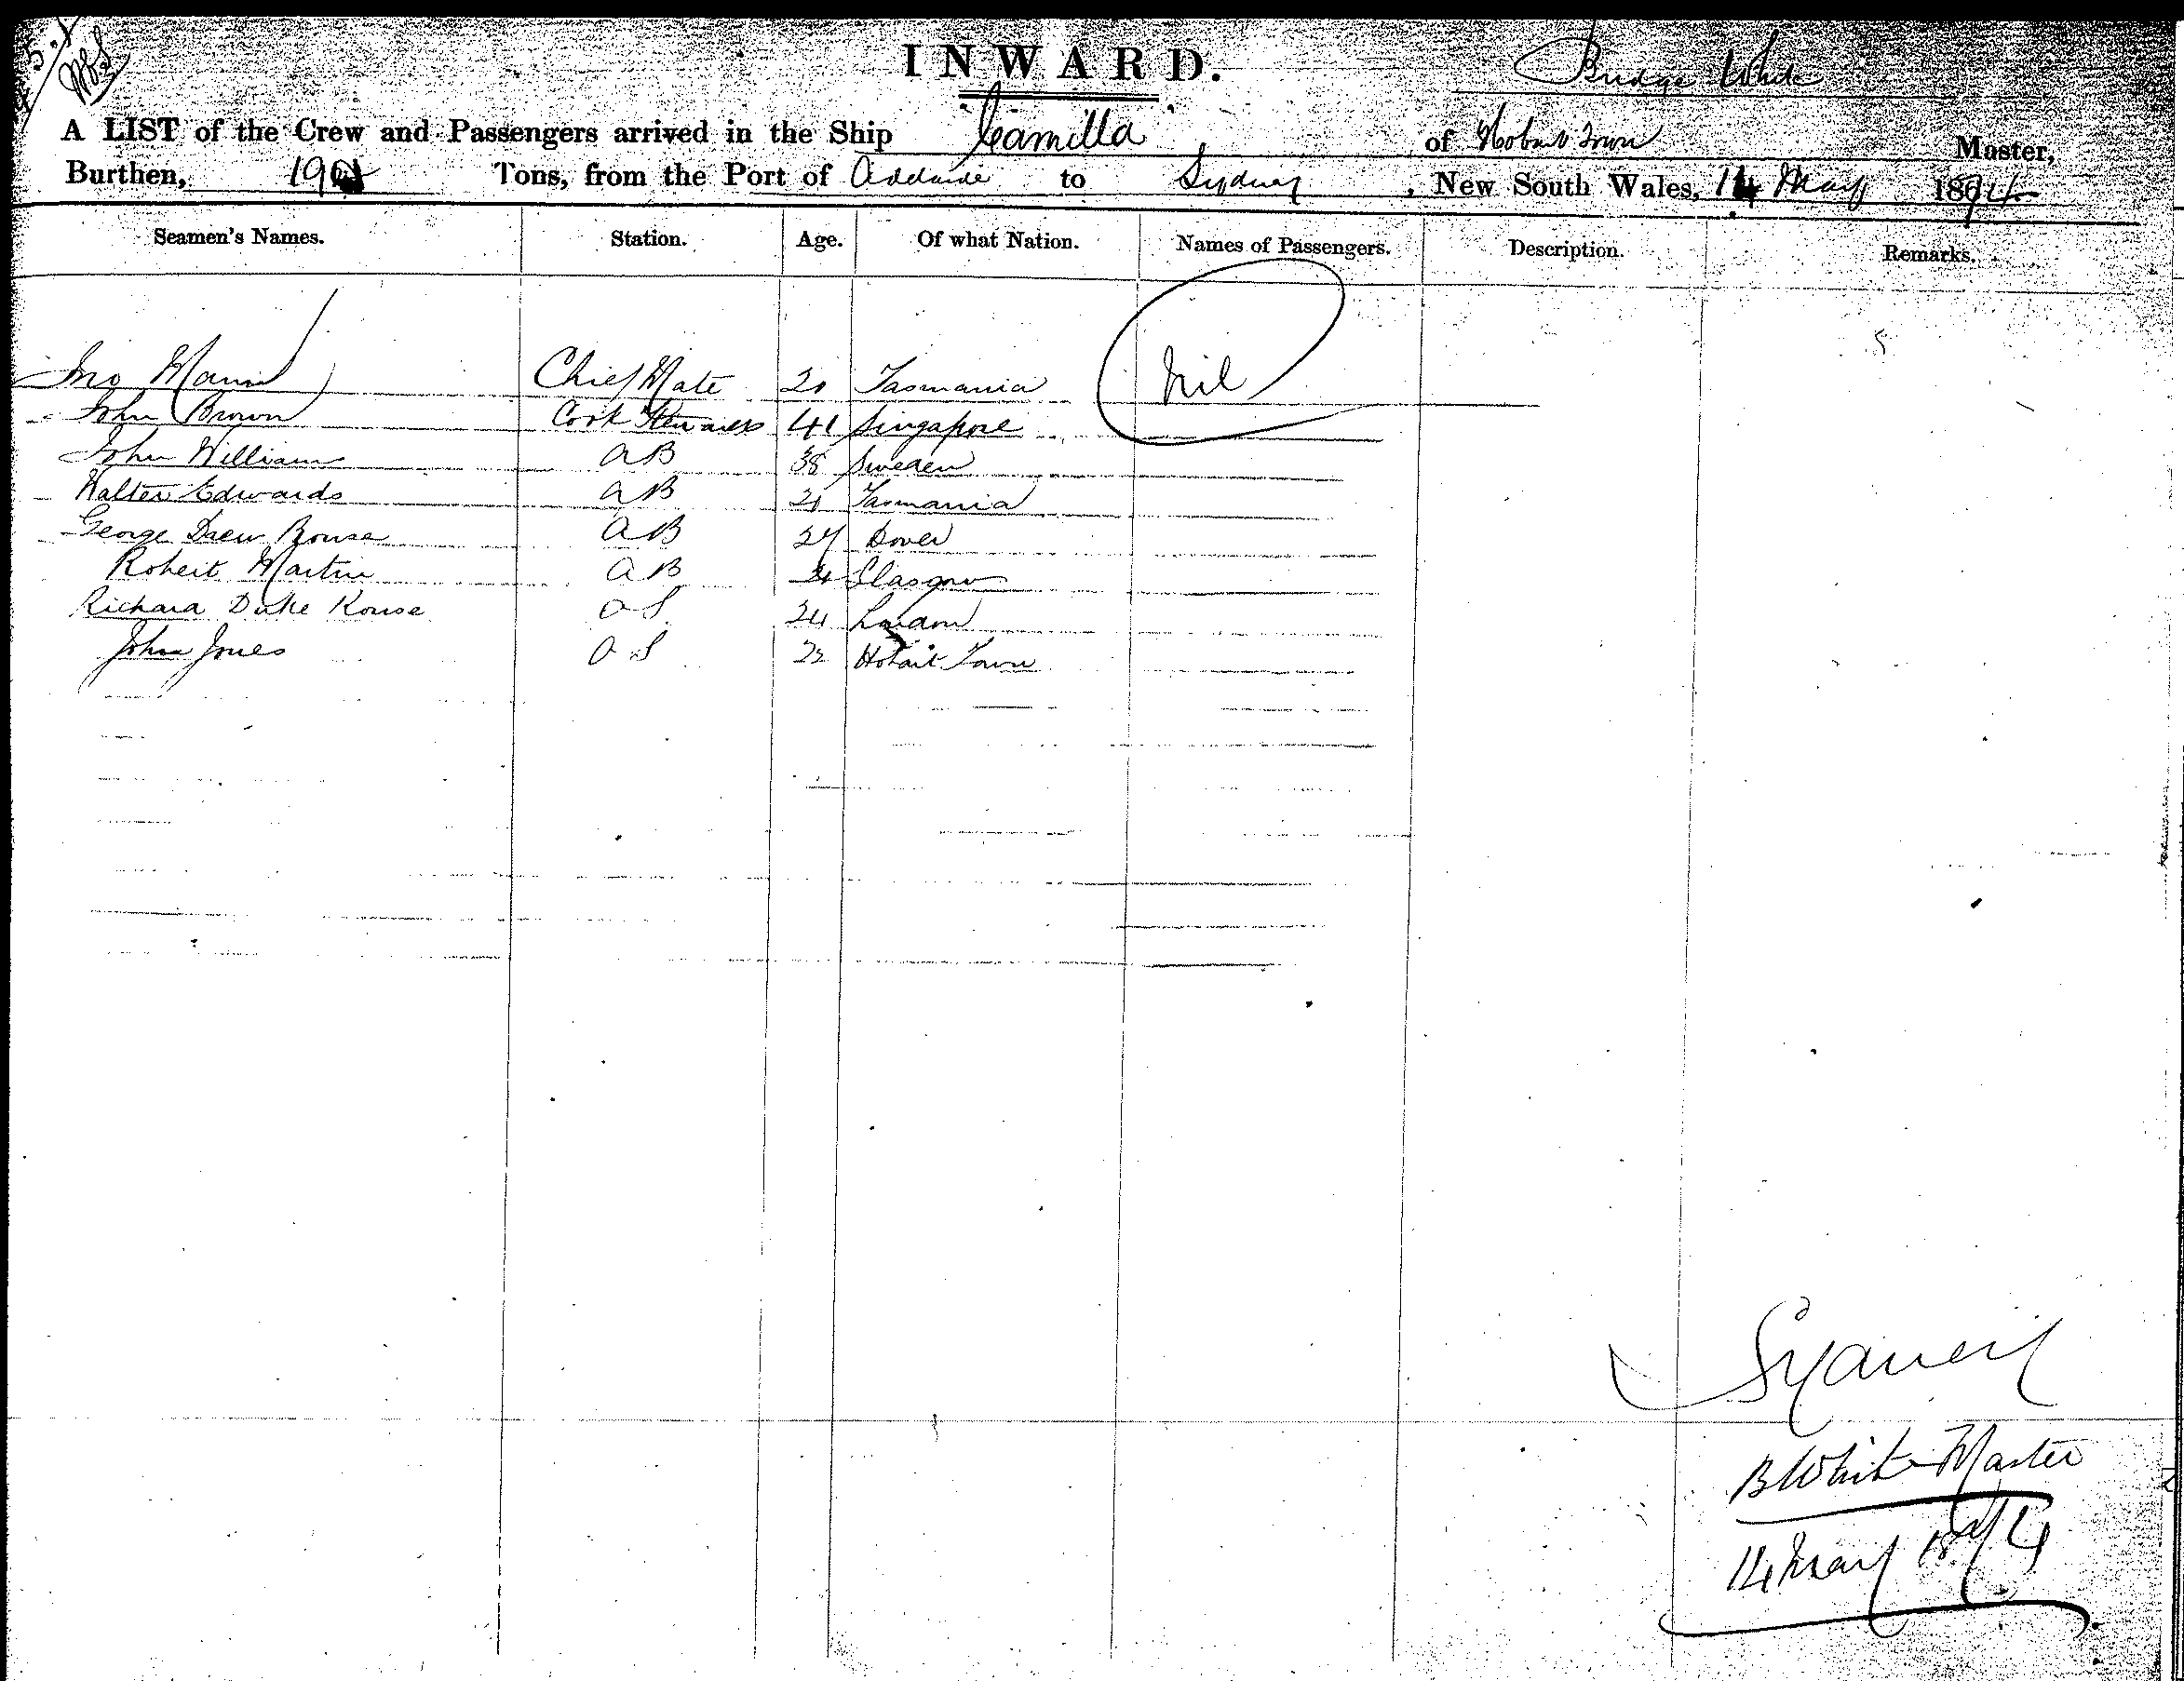 INWARD.
Bridge White
A LIST of the Crew and Passengers arrived in the Ship Camilla of Hobart Town Master,
Burthen, Tons, from the Port of Adelaide to Sydney, New South Wales, 14 May 1874
Seamen's Names. Station. Age. Of what Nation. Names of Passengers. Description. Remarks.
Jno Mann Chief Mate Tasmania Nil
John Brown Cook Steward 41 Singapore
John Williams AB 38 Sweden
Walter Edwards AB 21 Tasmania
George Drew Rouse AB 27 Dover
Robert Martin AB Glasgow
Richard Duke Rouse OS 24 London
John Jones OS 22 Hobart Town
Sydney
B White Master
14 May 1874